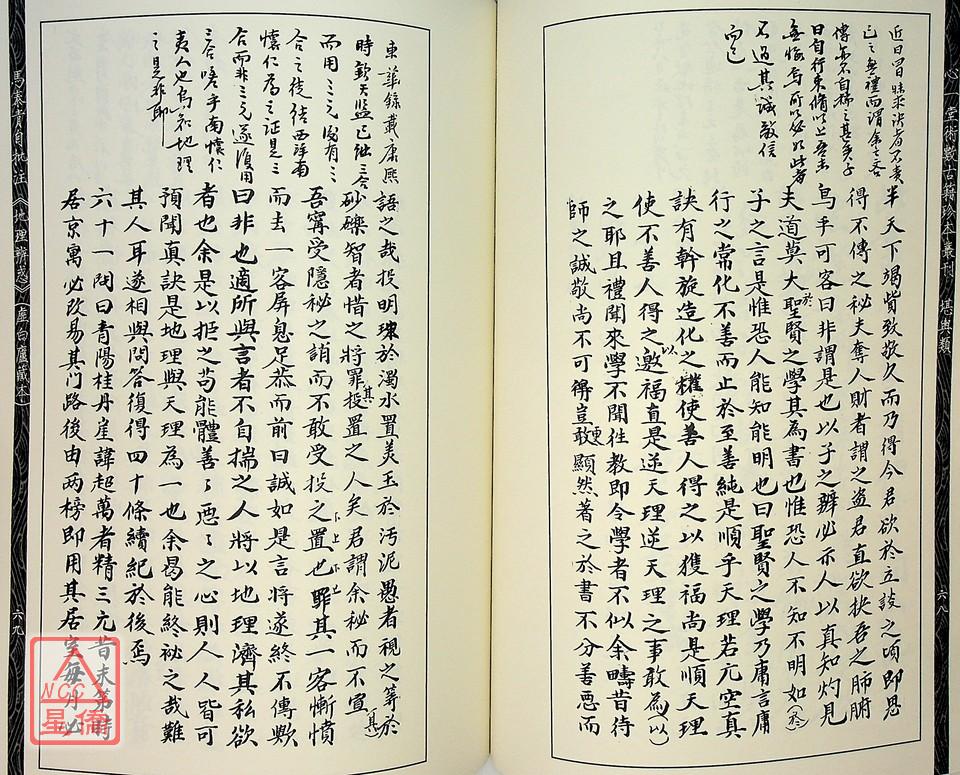 心一堂術數古籍珍本叢刊 堪輿類
六八
近日冒昧求決者不責
已之無禮而謂余之吝
傳亦不自稱之甚矣子
曰自行束脩以上吾未
無悔焉所以必如此者
不過其誠敬信
而已
半天下竭貲致敬久而乃得今君欲於立談之頃即見
得不傳之秘夫奪人財者謂之盜君直欲抉吾之肺腑
烏乎可客曰非謂是也以子之辯必亦人以真知灼見
夫道莫大於聖賢之學其為書也惟恐人不知不明如
子之言是惟恐人能知能明也曰聖賢之學乃庸言庸
行之常化不善而止於至善純是順乎天理若元空真
訣有斡旋造化之權使善人得之以獲福尚是順天理
使不善人得之以邀福直是逆天理逆天理之事敢為(以)
之耶且禮聞來學不聞往教即令學者不似余疇昔待
師之誠敬尚不可得豈敢更顯然著之於書不分善惡而
東華錄載康熙
時欽天監已訟三合
而用三元留有三
合之徒結西洋南
懷仁為之証是三
合而非三元遂復用
三合嗟乎南懷仁
夷人也烏知地理
之是非耶
語之哉投明珠於濁水置美玉於汚泥愚者視之等於
砂礫智者惜之將罪其投置之人矣君謂余秘而不宣
吾寧受隱秘之誚而不敢受投之置也罪其一客慚憤
而去一客屏息足恭而前曰誠如是言將遂終不傳歟
曰非也適所與言者不自揣之人將以地理濟其私欲
者也余是以拒之苟能體善善惡惡之心則人人皆可
預聞真訣是地理與天理為一也余曷能終祕之哉難
其人耳遂相與問答復得四十條續紀於後焉
六十一問曰青陽桂丹崖諱超萬者精三元昔未第時
居京寓必改易其門路後由两榜即用其居室每月必
馬泰青自批注《地理辨惑》(虛白廬藏本)
六九
NCC
星僑